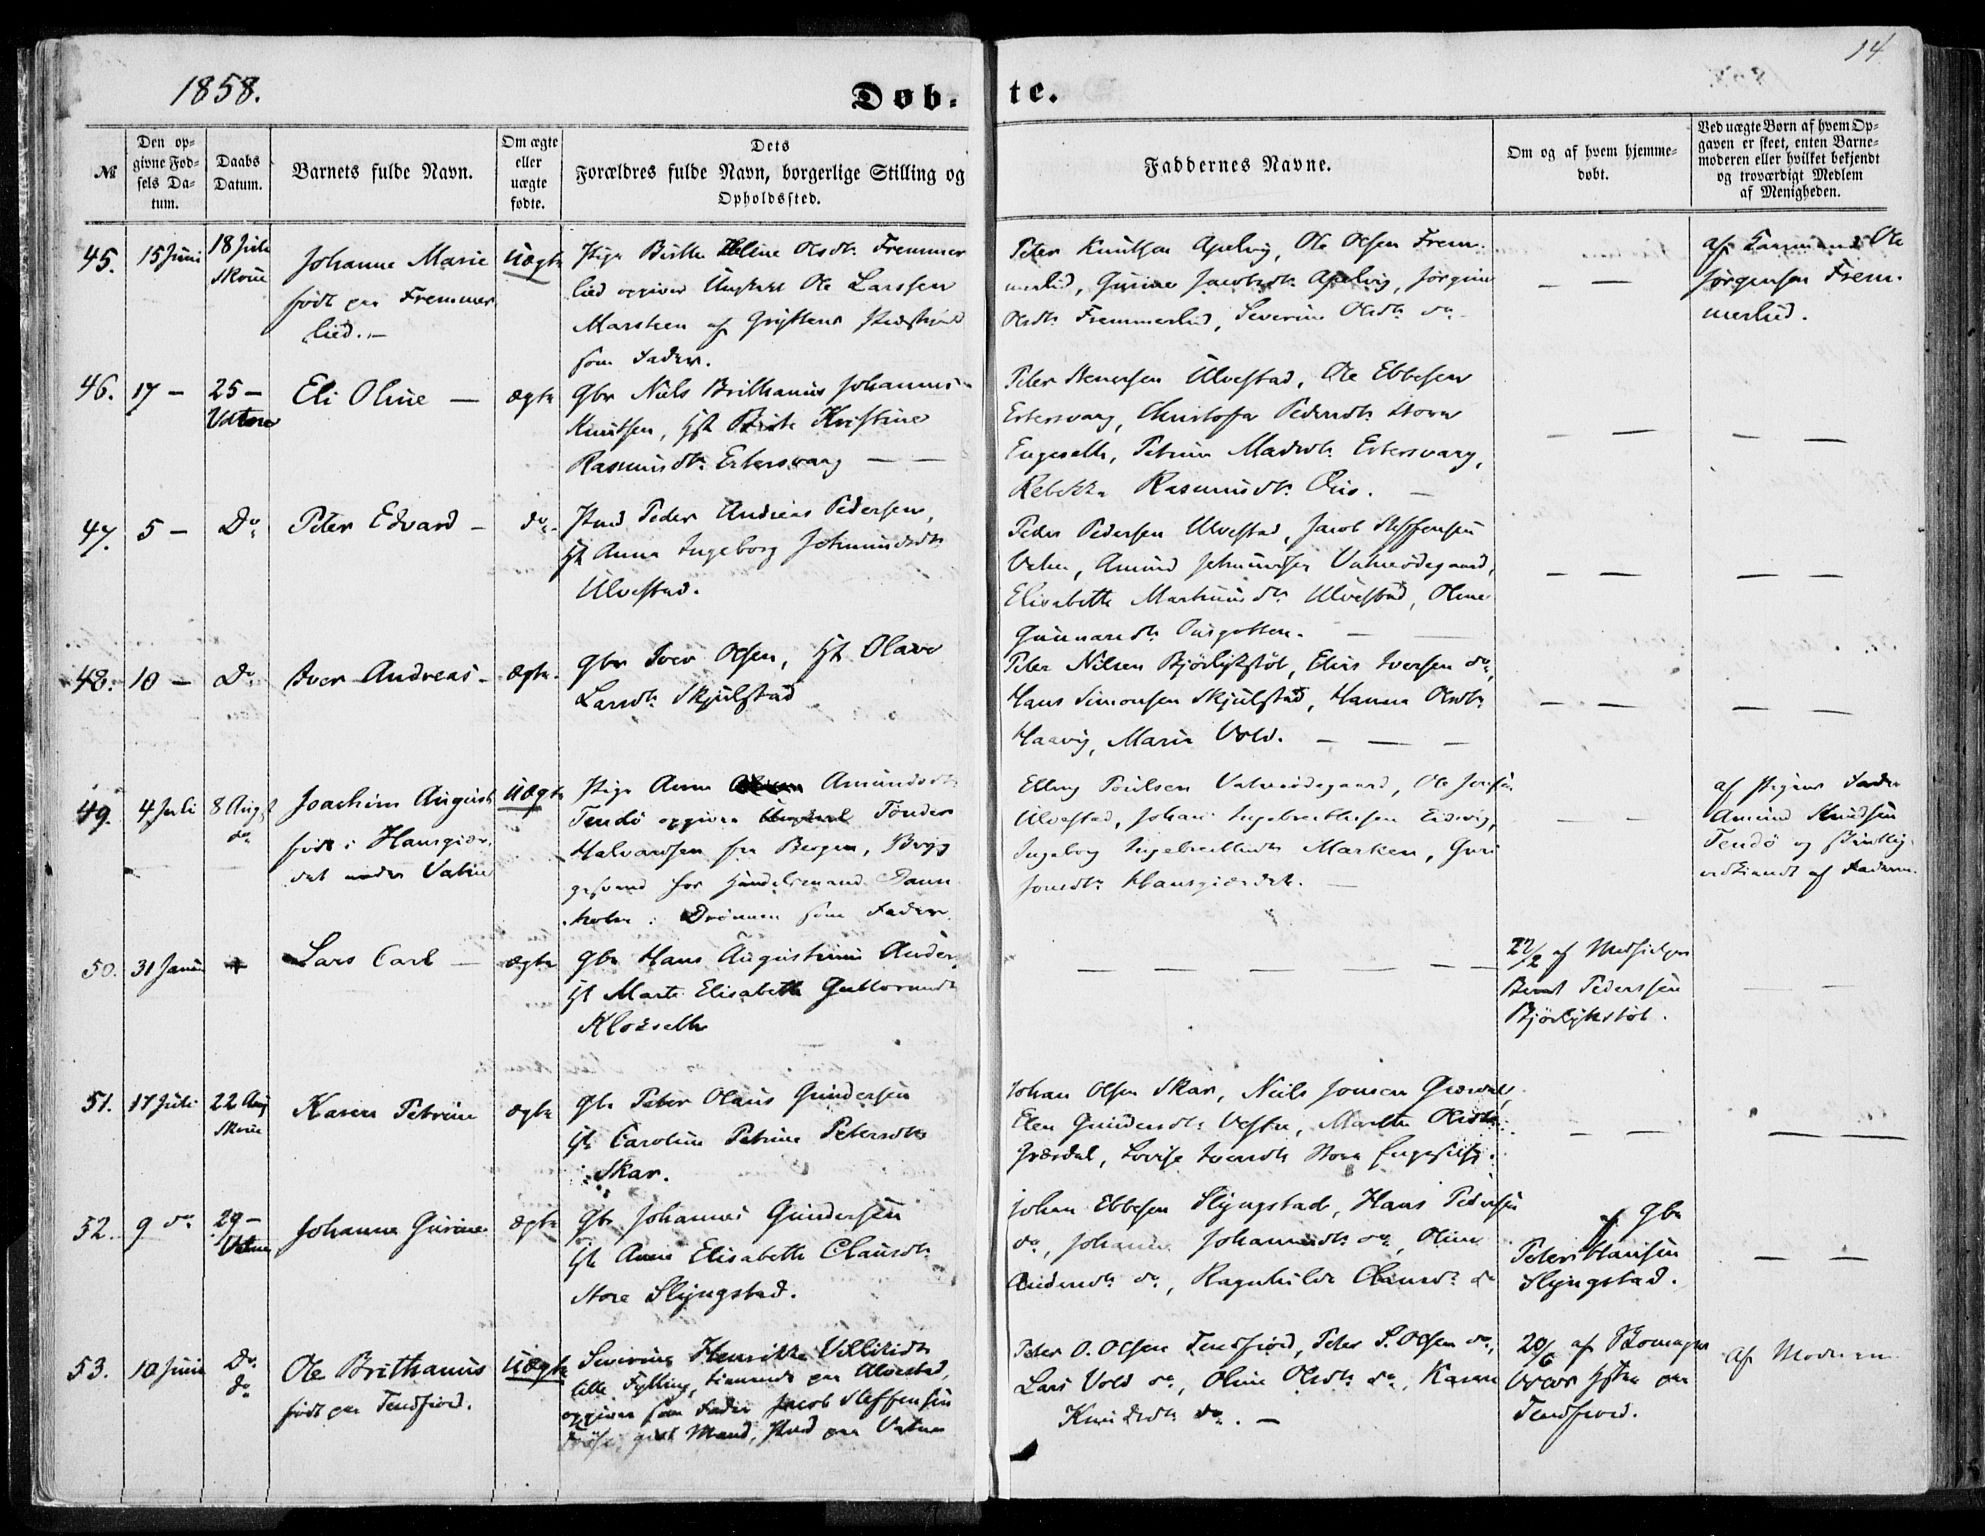 1858.
Døb-
te.
14
№
Den op-
givne Fød-
sels Da-
tum.
Daabs
Datum.
Barnets fulde Navn.
Om ægte
eller
uægte
fødte.
Dets
Forældres fulde Navn, borgerlige Stilling og
Opholdssted.
Faddernes Navne.
Om og af hvem hjemme-
døbt.
Ved uægte Børn af hvem Op-
gaven er skeet, enten Barne-
moderen eller hvilket bekjendt
og troværdigt Medlem
af Menigheden.
45.
15 Juni
18 Juli
Skoue
Johanne Marie
født paa Fremmer
lied.
Uægte
Pige Birthe Oline Olsdt. Fremmer
lied opgiver Ungkarl Ole Larssen
Marsteen af Gryttens Præstegjeld
som Fader.
Peter Knutsen Apelvig, Ole Olsen Frem-
merlied, Gurine Jacobsdt. Apelvig, Jørgine
Olsdt. Fremmerlied, Severine Olsdt. do
— —
af Ole
Jørgensen Frem-
merlied.
46.
17 —
25 —
Vatne
Eli Oline —
ægte
Gbr Niels Brithanius Johannes
Knutsen, H Kristine
Rasmusdt. Erkersvaag — —
Peter Ulvestad, Ole Ebbesen
Erkersvaag, Pedersdt. Store
Engeseth, Petrine Madsdt. Erkersvaag,
Rebekka Rasmusdt. —
— —
— —
47.
5 —
Do
Peter Edvard —
do
Peder Andreas Pedersen,
H Anna Ingeborg
Ulvestad.
Peder Pedersen Ulvestad, Jacob Steffensen
Vatne, Amund Vatneødegaard,
Elisabeth Martinusdt. Ulvestad, Oline
Gunnarsdt. — —
— —
— —
48.
10 —
Do
Iver Andreas —
ægte
Gbr Iver Olsen, H Olave
Larsdt. Skjulstad
Peter Nilsen Bjørlykstøl, Elias Iversen do,
Hans Simonsen Skjulstad, Hanna Olsdt.
Haavig, Marie Vold. — — —
— —
— —
49.
4 Juli
8 Augst
do
Joachim August
født i Hansgiær-
det under Vatne
Uægte
Pige Anne Amundsdt.
Tendø opgiver Ungkarl Tønder
Halvardsen fra Bergen,
for Handelsmand Dann
som Fader.
Elling Poulsen Vatneødegaard, Ole
Ulvestad, Johan Ingebrethsen Eidsvig,
Ingeborg Ingebrethsdt. Marken, Guri
Jonsdt. Hansgiærdet. —
— —
af Pigens Fader
Amund Knudsen
Tendø og skriftlig
vedkiendt af Faderen.
50.
31 Januar
+
Lars Carl —
ægte
Gbr Hans Augustinus Ander.
H Marte Elisabeth Guttormsdt.
— — — — —
27/2 af Medhielper
Bernt Pedersen
Bjørlykstøl.
— —
51.
17 Juli
22 Aug
Skoue
Karen Petrine
ægte
Gbr Peter Olaus Gundersen
H Caroline Petrine Petersdt.
Skar.
Johan Olsen Skar, Niels Jonsen Græsdal,
Elen Gundersdt. Vestre, Marthe Olsdt.
Græsdal, Lovise Iversdt. Store
— —
— —
52.
9 do
29 —
Vatne
Johanne Gurine
ægte
Gbr Johannes Gundersen
H Anne Elisabeth Clausdt.
Store Slyngstad.
Johan Ebbesen Slyngstad, Hans Pedersen
do, Johanne Johannesdt. do, Oline
Andersdt. do, Ragnhilde Clausdt. do
af Gbr
Peter Hansen
Slyngstad.
— —
53.
10 Juni
Do
do
Ole Brithanius
født paa Tendfiord.
Uægte
Severine Henrikke Villiksdt.
lille Fylling, tienende paa Ulvestad,
opgiver som Fader Jacob Steffensen
gift Mand, paa Vatne
Peter O. Olsen Tendfiord, Peter S. Olsen do,
Lars Vold do, Oline Olsdt. do, Karen
Knudsdt. do. —
20/6 af
paa
Tendfiord.
Af Moderen